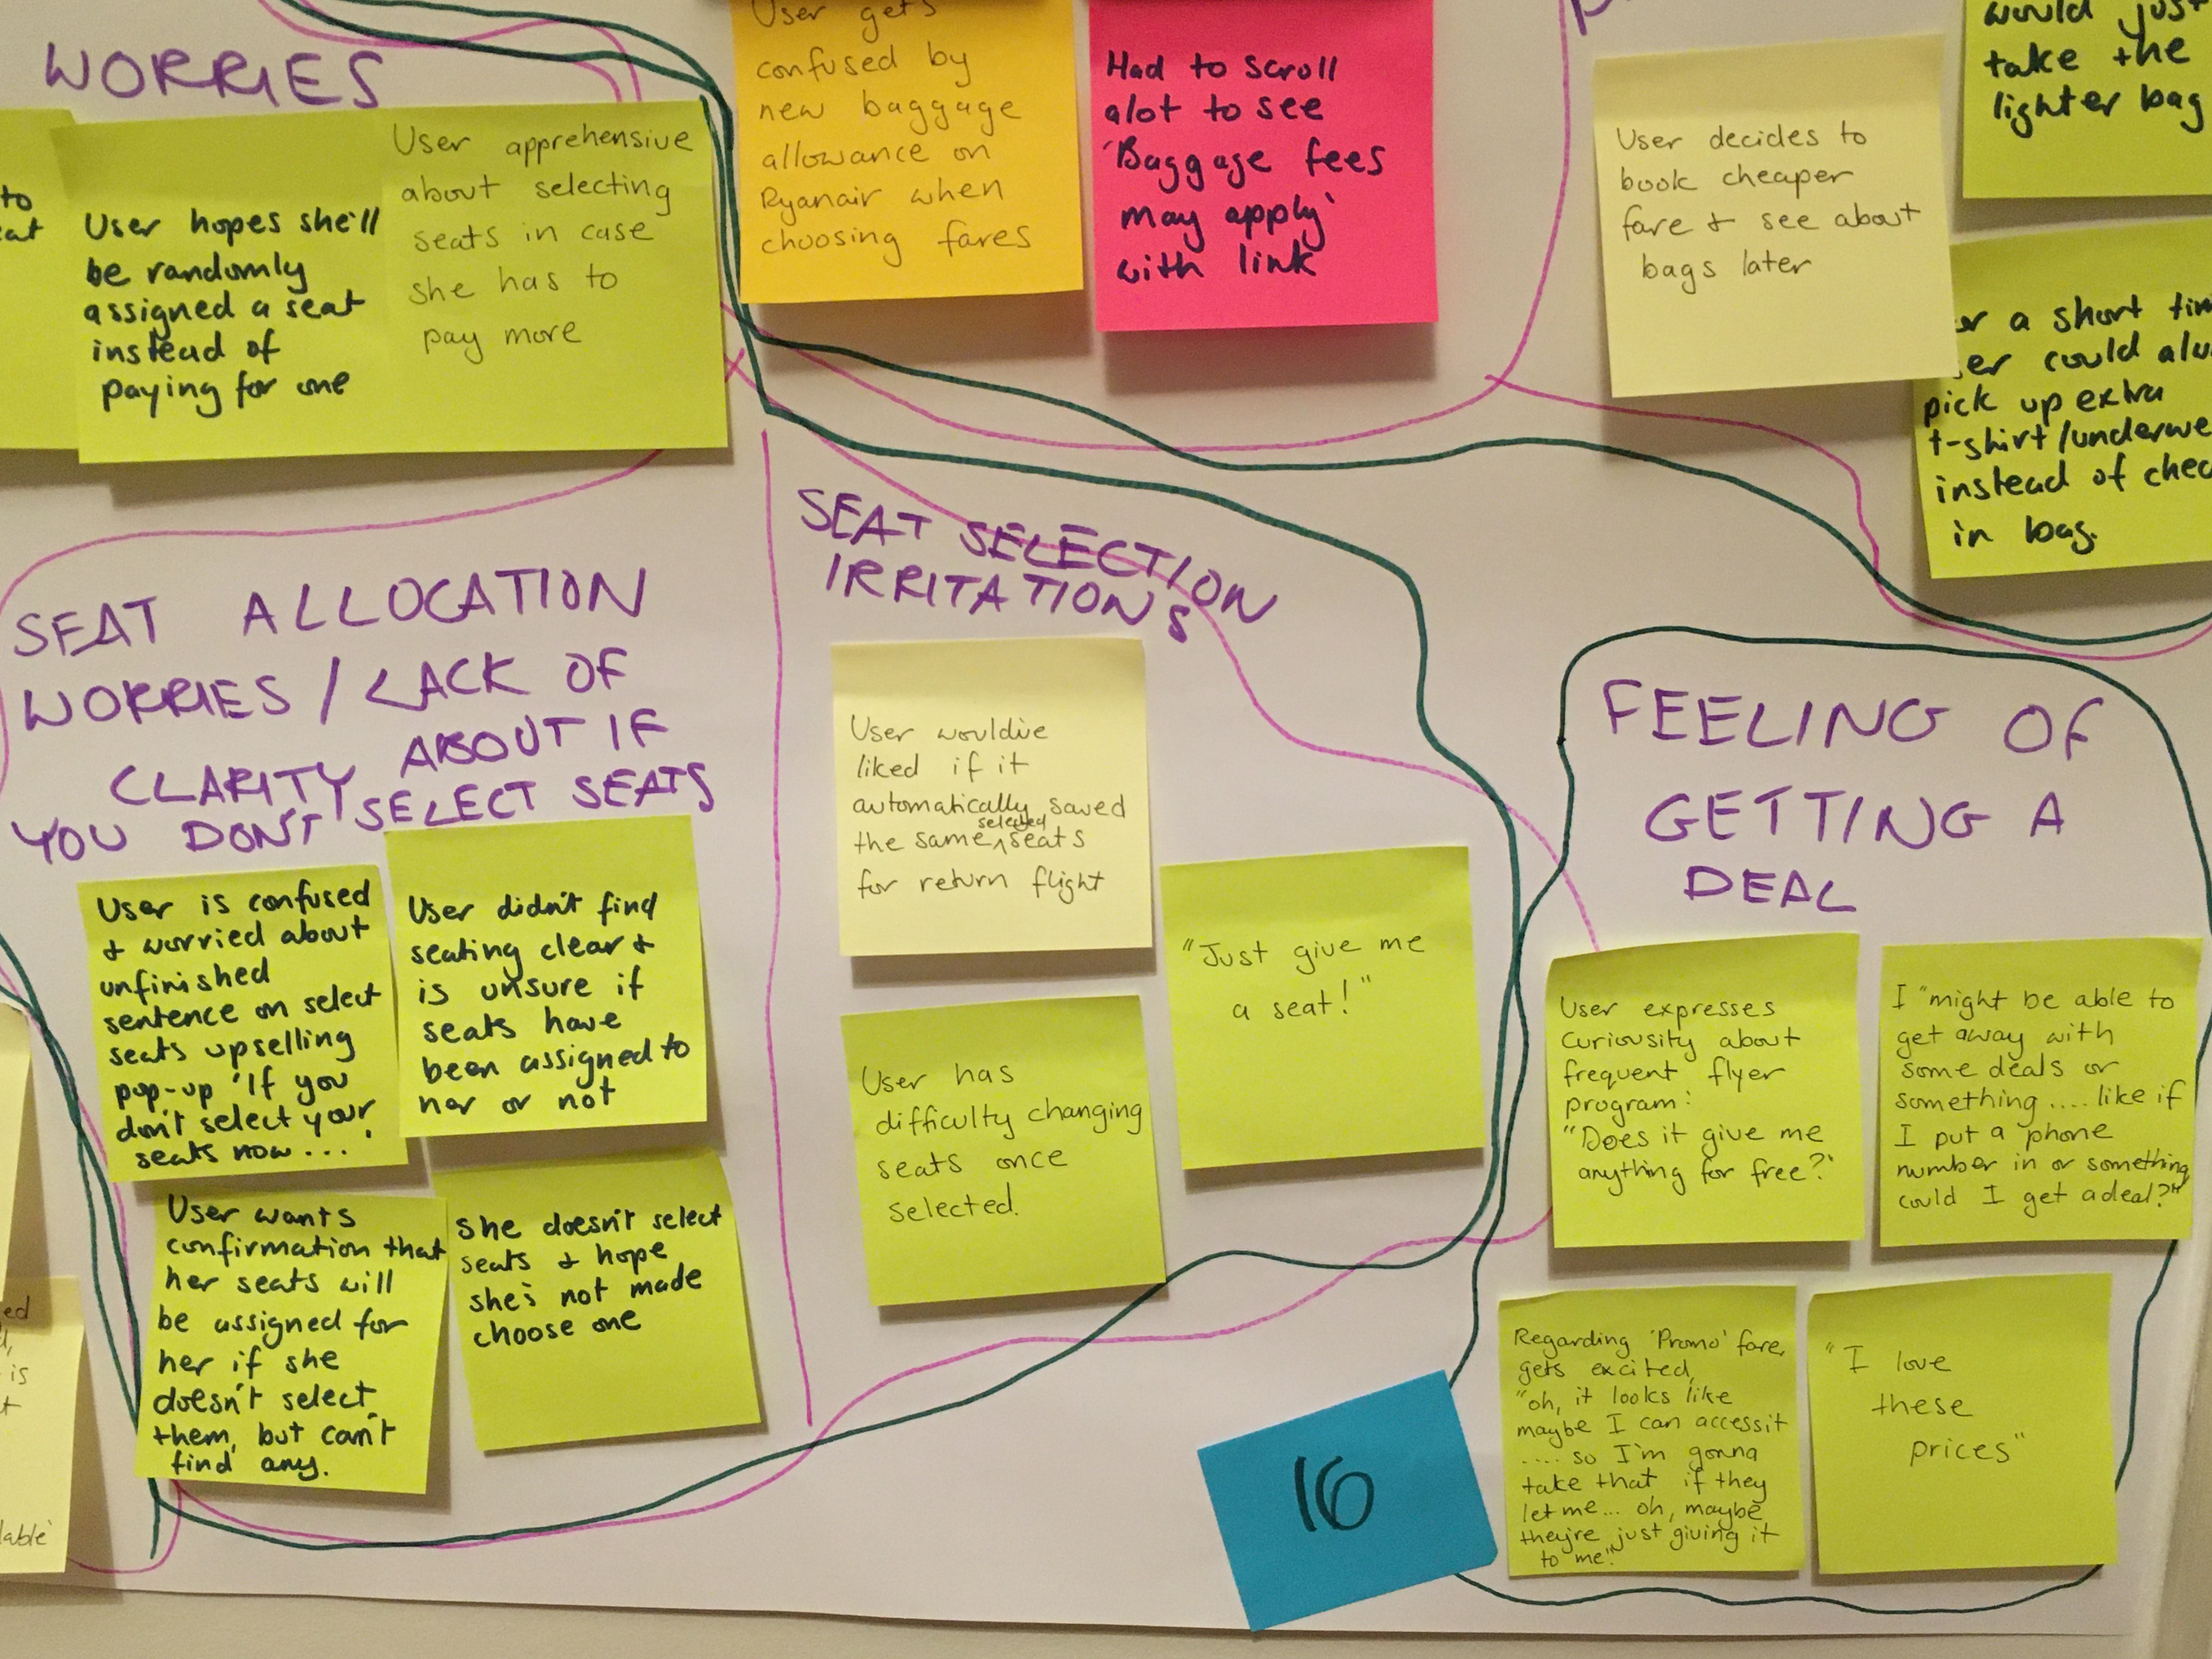 WORRIES
to
User hopes she'll
be randomly
assigned a seat
instead of
paying for one
User apprehensive
about selecting
seats in case
she has to
pay more
User gets
confused by
new baggage
allowance on
Ryanair when
choosing fares
Had to scroll
alot to see
'Baggage fees
may apply'
with link
User decides to
book cheaper
fare + see about
bags later
would just
take the
lighter bag
a short
could
pick up extra
t-shirt/
instead of
in bag.
SEAT ALLOCATION
WORRIES / LACK OF
CLARITY ABOUT IF
YOU DON'T SELECT SEATS
User is confused
+ worried about
unfinished
sentence on select
seats upselling
pop-up 'If you
don't select your
seats now...'
User didn't find
seating clear +
is unsure if
seats have
been assigned to
her or not
User wants
confirmation that
her seats will
be assigned for
her if she
doesn't select
them, but can't
find any.
She doesn't select
seats + hope
she's not made
choose one
ed
is
lable'
SEAT SELECTION
IRRITATIONS
User would've
liked if it
automatically saved
the same selected seats
for return flight
"Just give me
a seat!"
User has
difficulty changing
seats once
selected.
FEELING OF
GETTING A
DEAL
User expresses
curiousity about
frequent flyer
program:
"Does it give me
anything for free?"
I "might be able to
get away with
some deals or
something .... like if
I put a phone
number in or something
could I get a deal?"
Regarding 'Promo' fare,
gets excited,
"oh, it looks like
maybe I can access it
.... so I'm gonna
take that if they
let me... oh, maybe
they're just giving it
to me".
"I love
these
prices"
16